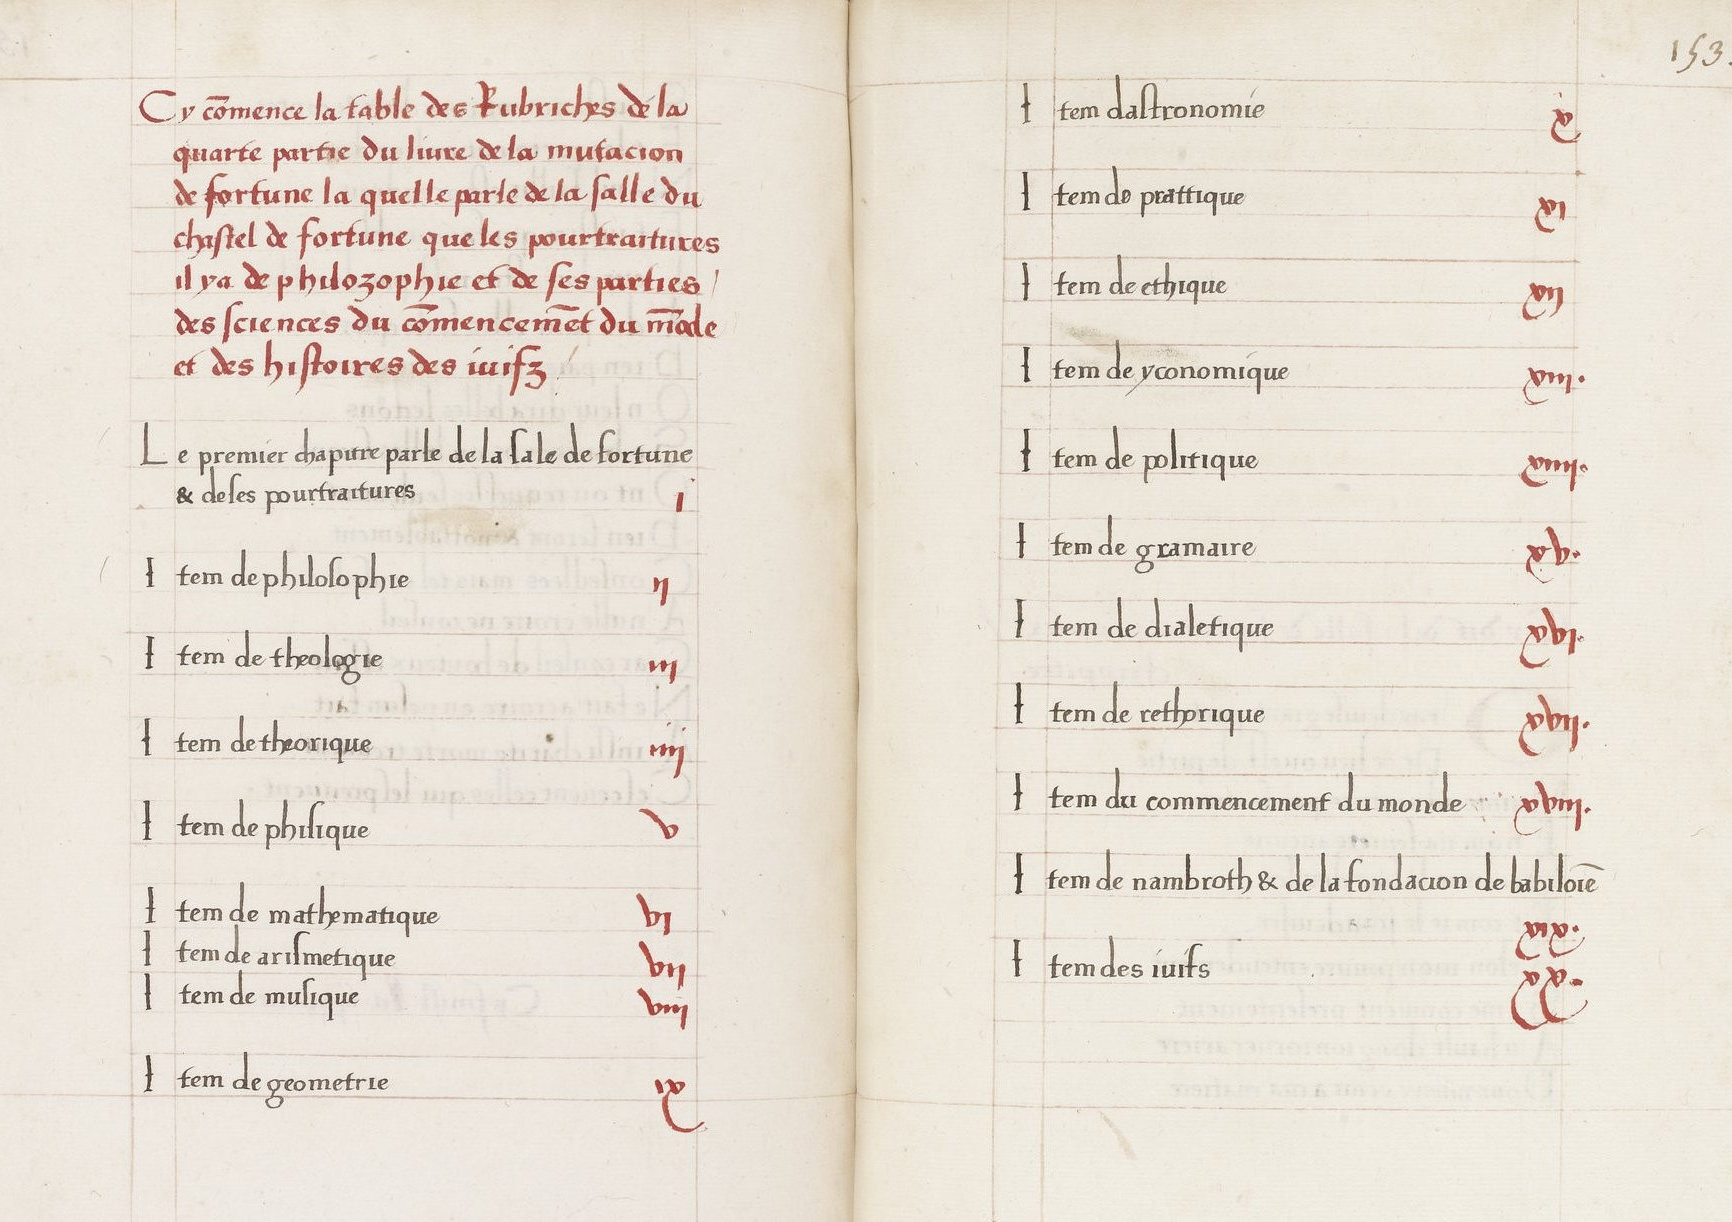 Cy cōmence la table des Rubriches de la
quarte partie du liure de la mutacion
de fortune la quelle parle de la salle du
chastel de fortune que les pourtraitures
il ya de philozophie et de ses parties /
des sciences du cōmencemēt du mōde
et des histoires des iuifz /
Le premier chapitre parle de la sale de fortune
& de ses pourtraitures i
Item de philosophie ii
Item de theologie iii
Item de theorique iiij
Item de phisique v
Item de mathematique vi
Item de arismetique vii
Item de musique viii
Item de geometrie ix
153.
Item dastronomie x
Item de prattique xi
Item de ethique xii
Item de yconomique xiii.
Item de politique xiiii.
Item de gramaire xv.
Item de dialetique xvi.
Item de rethorique xvii.
Item du commencement du monde xviii.
Item de nambroth & de la fondacion de babiloiē
xix.
Item des iuifs xx.